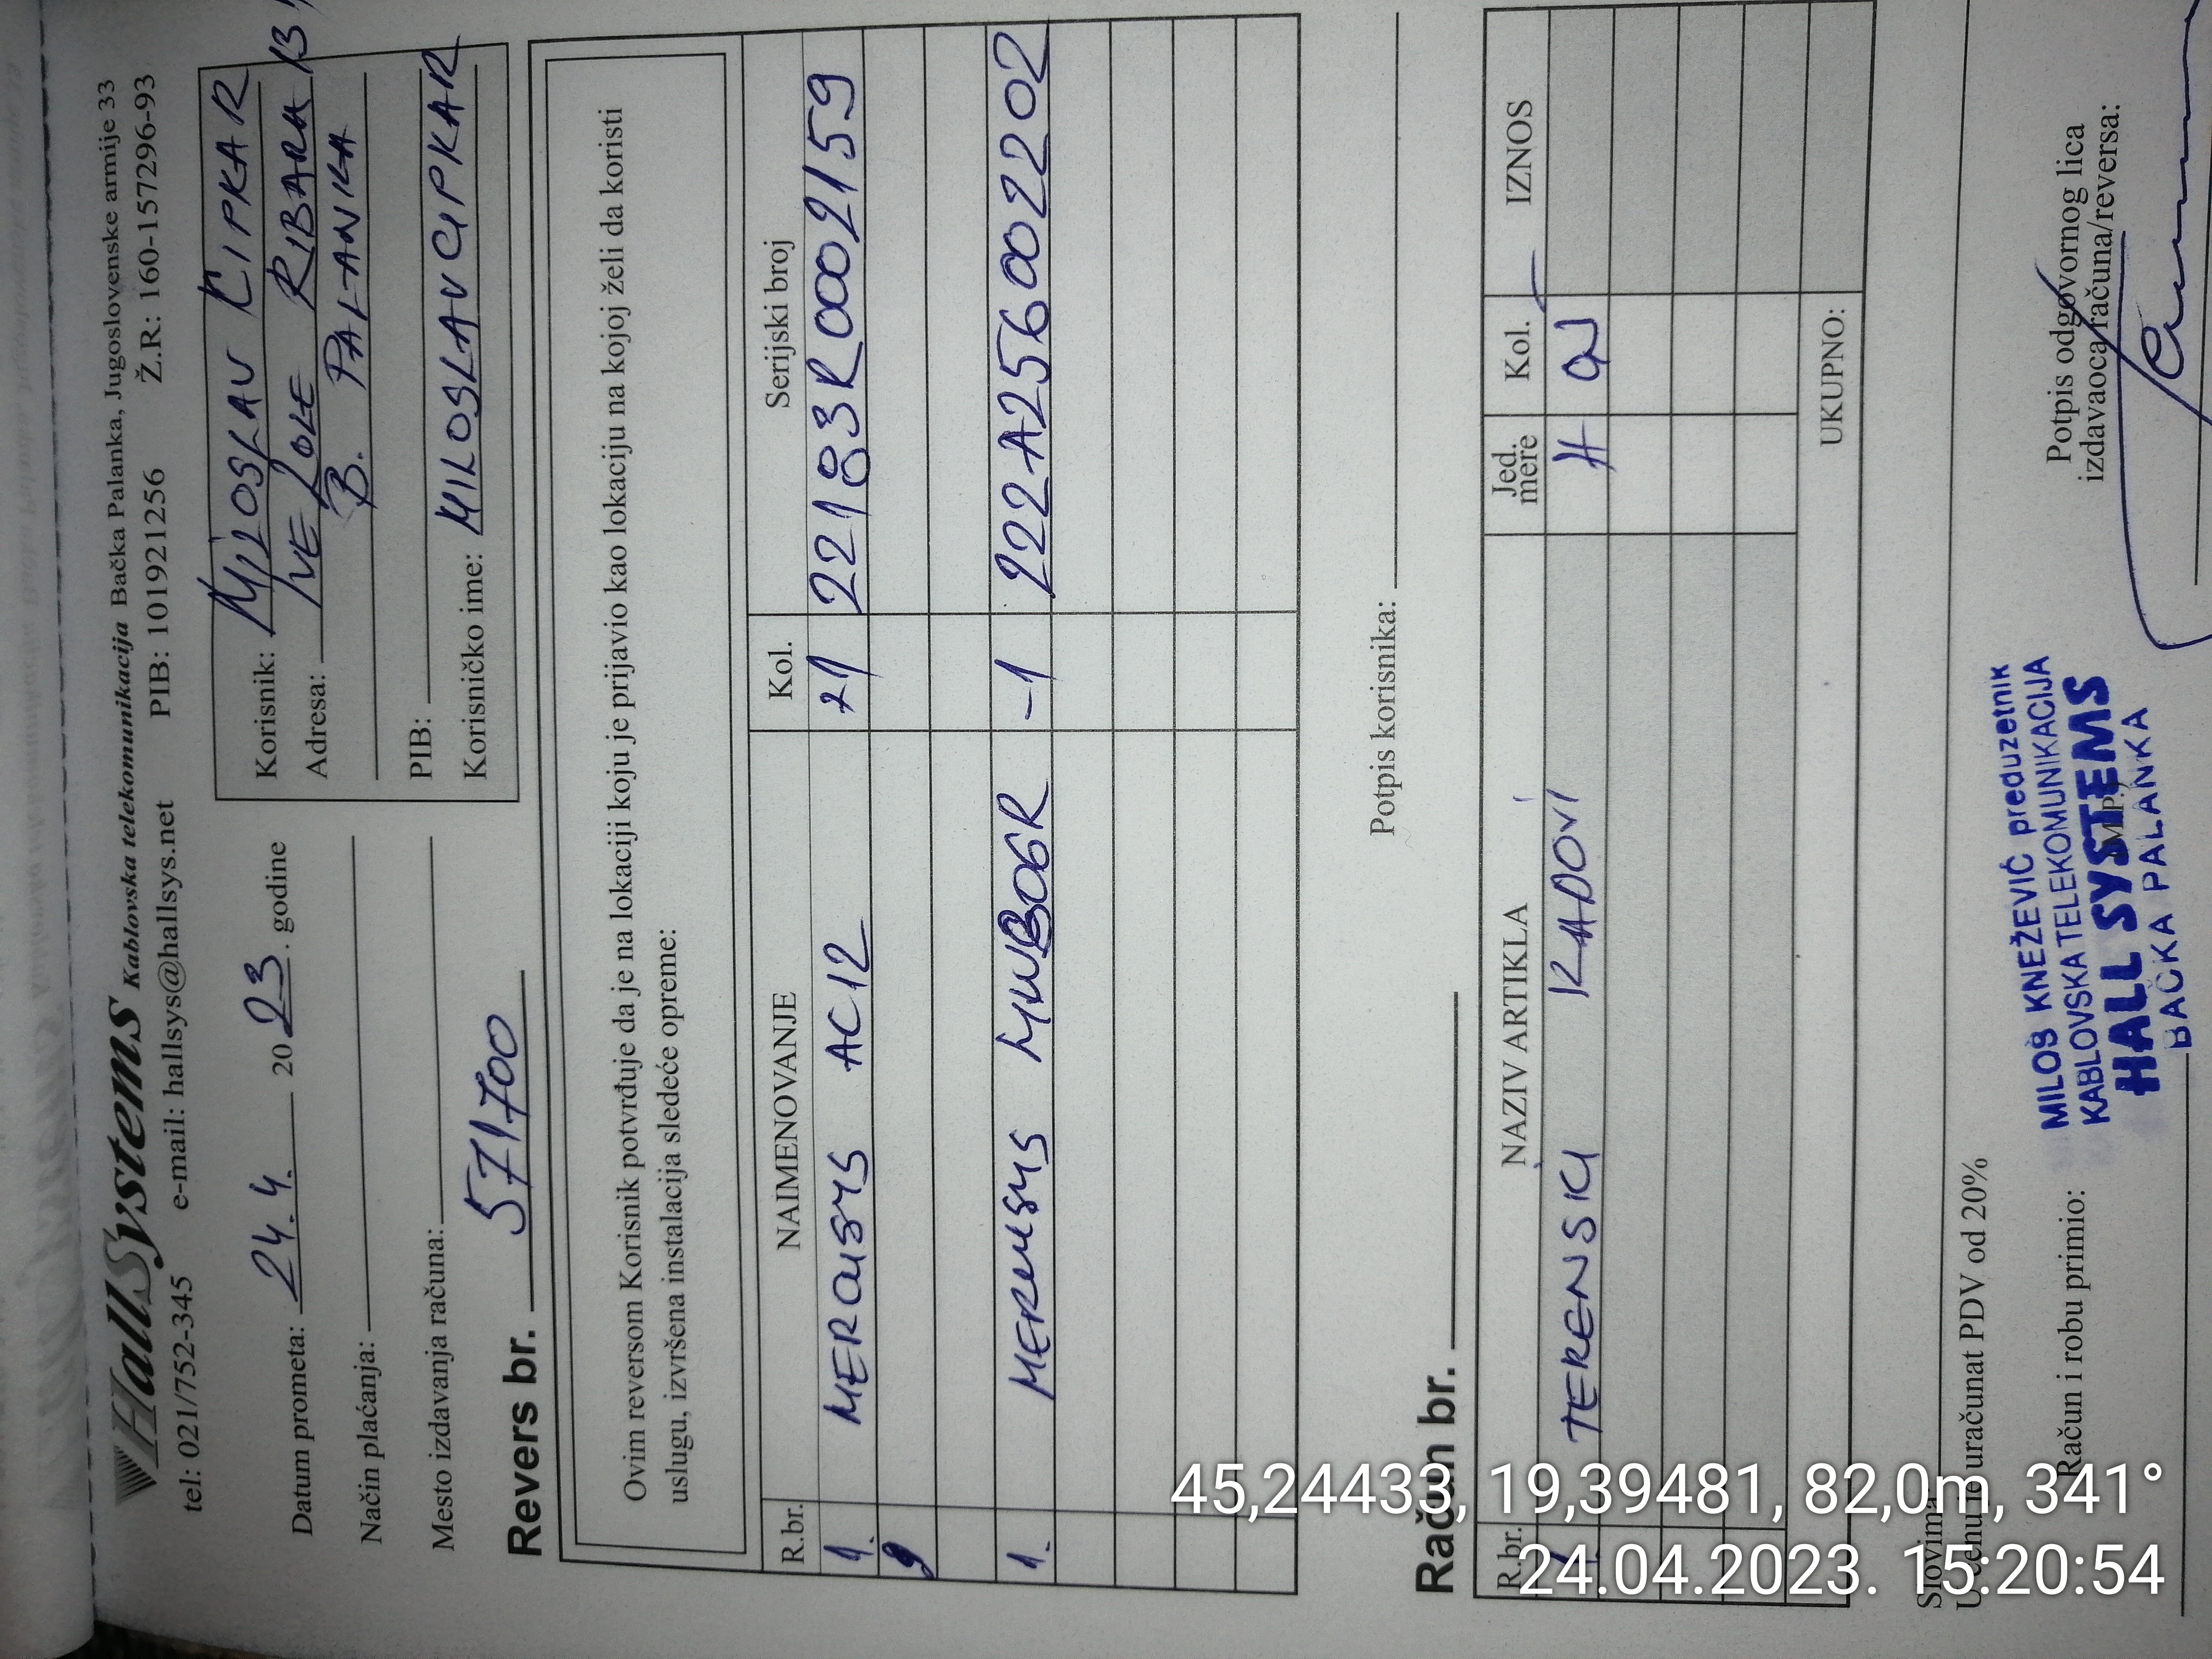 HallSystems Kablovska telekomunikacija Bačka Palanka, Jugoslovenske armije 33
tel: 021/752-345 e-mail: hallsys@hallsys.net PIB: 101921256 Ž.R: 160-157296-93
Datum prometa: 24.4. 2023. godine
Način plaćanja:
Mesto izdavanja računa:
Korisnik: MILOSLAV ČIPKAR
Adresa: IVE LOLE RIBARA 13
B. PALANKA
PIB:
Korisničko ime: MILOSLAVCIPKAR
Revers br. 571700
Ovim reversom Korisnik potvrđuje da je na lokaciji koju je prijavio kao lokaciju na kojoj želi da koristi
uslugu, izvršena instalacija sledeće opreme:
R.br. NAIMENOVANJE Kol. Serijski broj
1. MERCUSYS AC12 +1 22183R0002159
1. MERCUSYS MW306R -1 222A256002202
Potpis korisnika:
Račun br.
R.br. NAZIV ARTIKLA Jed. mere Kol. IZNOS
TERENSKI RADOVI H
UKUPNO:
Slovima
U cenu je uračunat PDV od 20%
Račun i robu primio:
M.P.
Potpis odgovornog lica
izdavaoca računa/reversa:
MILOŠ KNEŽEVIĆ preduzetnik
KABLOVSKA TELEKOMUNIKACIJA
HALL SYSTEMS
BAČKA PALANKA
45,24433, 19,39481, 82,0m, 341°
24.04.2023. 15:20:54